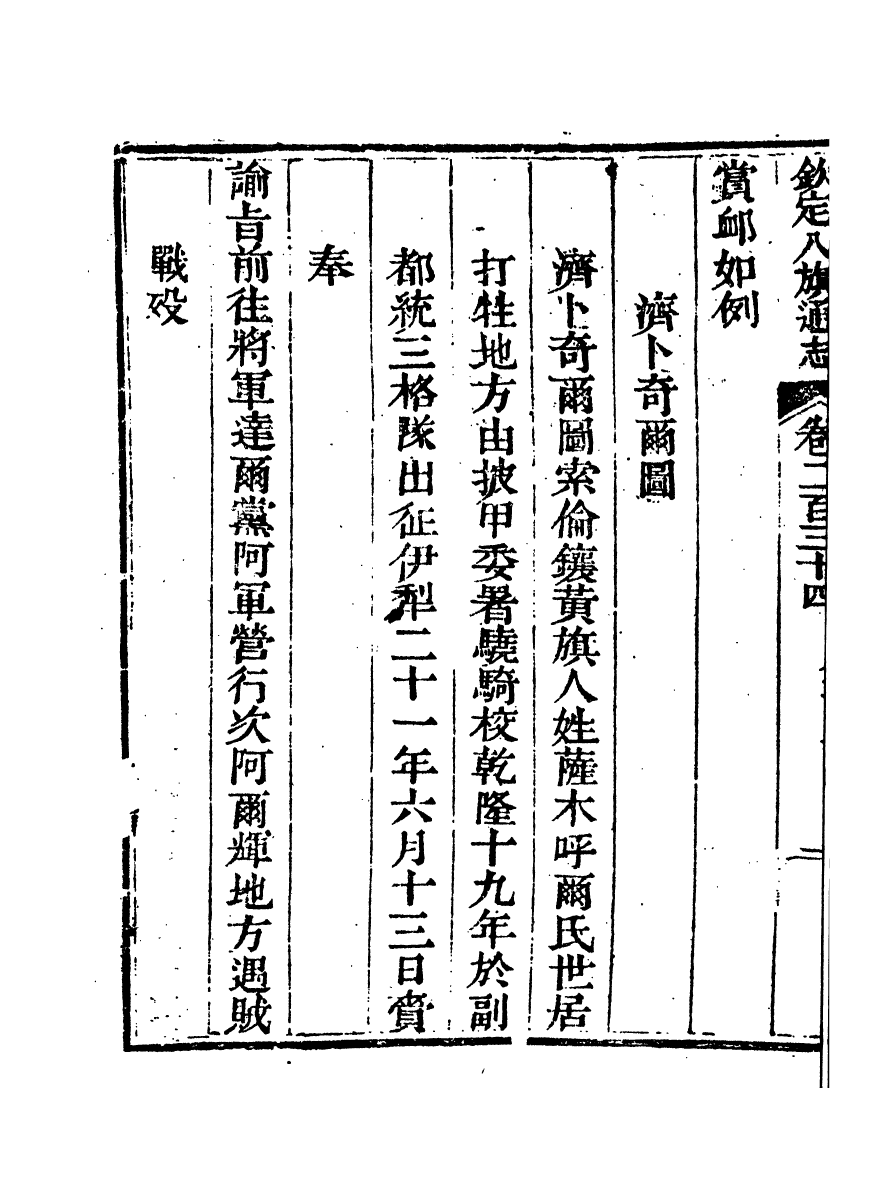 欽定八旗通志 卷二百三十四 二
賞卹如例
濟卜奇爾圖
濟卜奇爾圖索倫鑲黃旗人姓薩木呼爾氏世居
打牲地方由披甲委署驍騎校乾隆十九年於副
都統三格隊出征伊犁二十一年六月十三日賫
奉
諭旨前往將軍達爾黨阿軍營行次阿爾輝地方遇賊
戰歿